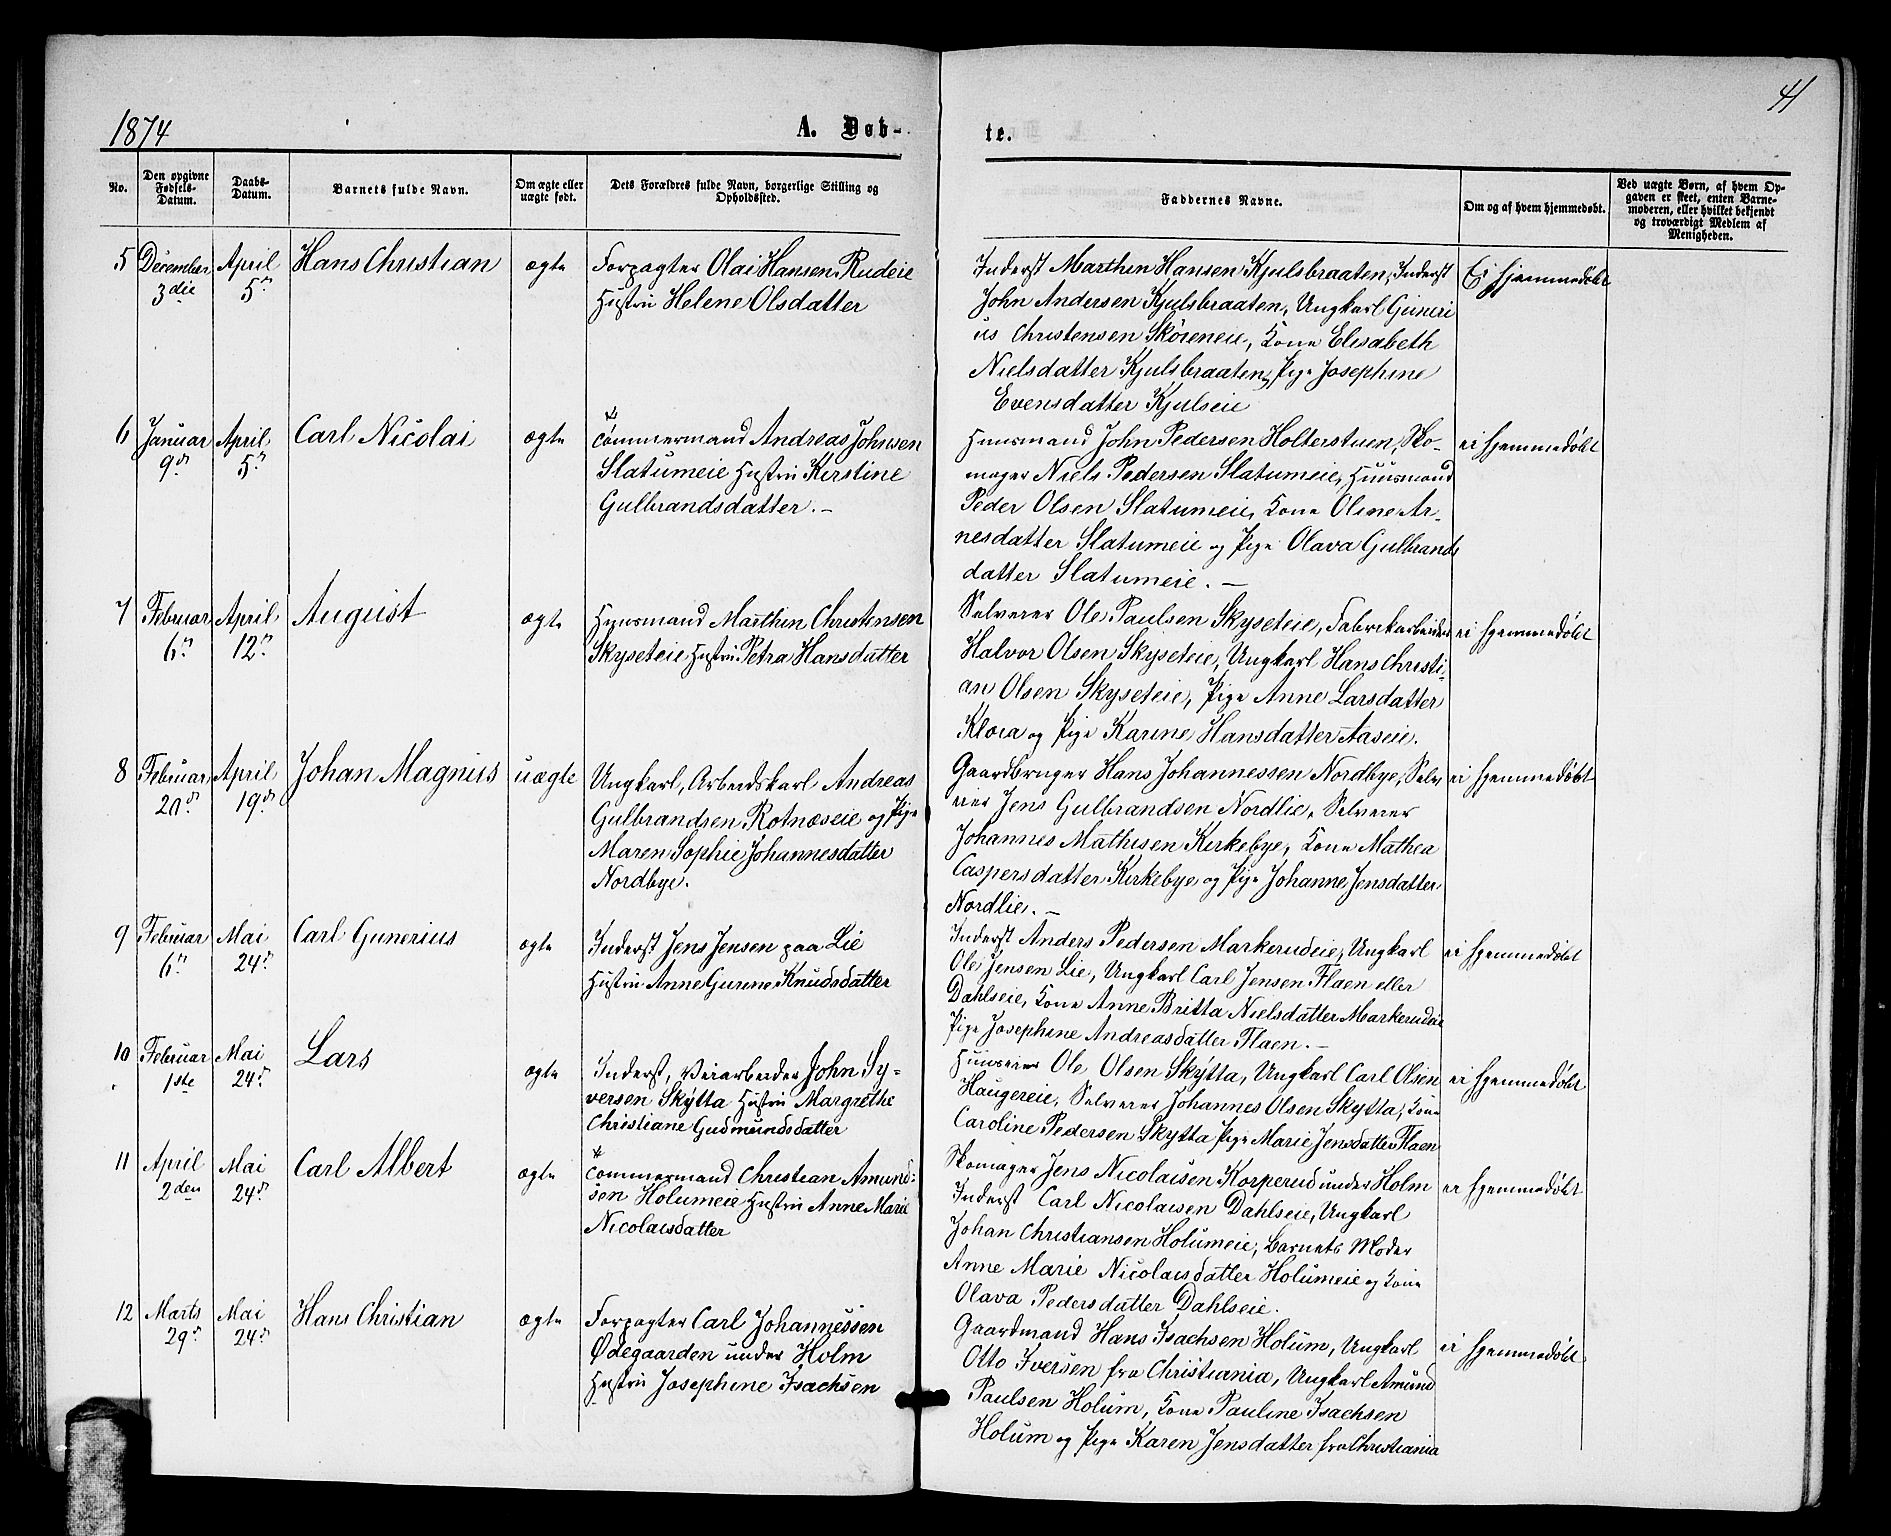 41
1874
A. Døb-
te.
No.
Den opgivne
Fødsels-
Datum.
Daabs-
Datum.
Barnets fulde Navn.
Om ægte eller
uægte født.
Dets Forældres fulde Navn, borgerlige Stilling og
Opholdssted.
Faddernes Navne.
Om og af hvem hjemmedøbt.
Ved uægte Børn, af hvem Op-
gaven er skeet, enten Barne-
moderen, eller hvilket bekjendt
og troværdigt Medlem af
Menigheden.
5
December
3die
April
5n
Hans Christian
ægte
Forpagter Olai Hansen Rudeie
Hustru Helene Olsdatter
Inderst Marthin Hansen Kjulsbraaten, Inderst
John Andersen Kjulsbraaten, Ungkarl Guneri
us Christensen Skøieneie, Kone Elisabeth
Nielsdatter Kjulsbraaten, Pige Josephine
Evensdatter Kjulseie
Ei hjemmedøbt
6
Januar
9d
April
5n
Carl Nicolai
ægte
Tømmermand Andreas Johnsen
Slatumeie Hustru Kirstine
Gulbrandsdatter. -
Huusmand John Pedersen Holterstuen, Sko-
mager Niels Pedersen Slatumeie, Huusmand
Peder Olsen Slatumeie, Kone Oline Ar-
nesdatter Slatumeie og Pige Olava Gulbrands
datter Slatumeie. -
ei hjemmedøbt
7
Februar
6n
April
12n
August
ægte
Huusmand Marthin Christensen
Skyseteie Hustru Petra Hansdatter
Selveier Ole Paulsen Skyseteie, Fabrikarbeider
Halvor Olsen Skyseteie, Ungkarl Hans Christi-
an Olsen Skyseteie, Pige Anne Larsdatter
Kløia og Pige Karine Hansdatter Aaseie.
ei hjemmedøbt
8
Februar
20d
April
19d
Johan Magnus
uægte
Ungkarl, Arbeidskarl Andreas
Gulbrandsen Rotnæseie og Pige
Maren Sophie Johannesdatter
Nordbye.
Gaardbruger Hans Johannessen Nordbye, Selv
eier Jens Gulbrandsen Nordlie, Selveier
Johannes Mathisen Kirkebye, Kone Mathea
Caspersdatter Kirkebye og Pige Johanne Jensdatter
Nordlie. -
ei hjemmedøbt
9
Februar
6n
Mai
24d
Carl Gunerius
ægte
Inderst Jens Jensen paa Lie
Hustru Anne Gurine Knudsdatter
Inderst Anders Pedersen Markerudeie, Ungkarl
Ole Jensen Lie, Ungkarl Carl Jensen Flaen eller
Dahlseie, Kone Anne Britta Nielsdatter Markerudeie
Pige Josephine Andreasdatter Flaen. -
ei hjemmedøbt
10
Februar
1ste
Mai
24d
Lars
ægte
Inderst, Veiarbeider John Sy-
versen Skytta Hustru Margrethe
Christiane Gudmundsdatter
Huuseier Ole Olsen Skytta, Ungkarl Carl Olsen
Haugereie, Selveier Johannes Olsen Skytta, Kone
Caroline Pedersen Skytta Pige Marie Jensdatter Flaen
ei hjemmedøbt
11
April
2den
Mai
24d
Carl Albert
ægte
Tømmermand Christian Amund-
sen Holumeie Hustru Anne Marie
Nicolaisdatter
Skomager Jens Nicolaisen Korperud under Holm
Inderst Carl Nicolaisen Dahlseie, Ungkarl
Johan Christiansen Holumeie, Barnets Moder
Anne Marie Nicolaisdatter Holumeie og Kone
Olava Pedersdatter Dahlseie.
ei hjemmedøbt
12
Marts
29d
Mai
24d
Hans Christian
ægte
Forpagter Carl Johannessen
Ødegaarden under Holm
Hustru Josephine Isachsen
Gaardmand Hans Isachsen Holum, Ungkarl
Otto Iversen fra Christiania, Ungkarl Amund
Paulsen Holum, Kone Pauline Isachsen
Holum og Pige Karen Jensdatter fra Christiania
ei hjemmedøbt